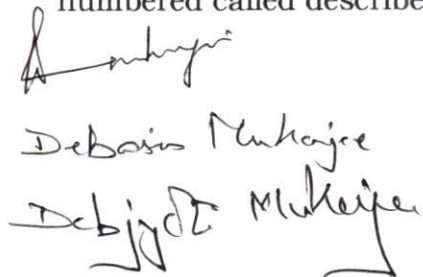 numbered called describe
Debasis Mukherjee
Debjyoti Mukherjee